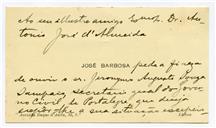 Ao seu illustre amigo Exmo. Sr. Dr. An-
tonio José d'Almeida
JOSÉ BARBOSA pede a fineza
de ouvir o sr. Jeronymo Augusto
Sampaio, secretario geral do Gover-
no Civil de Portalegre, que deseja
expôr-lhe a sua situação
Lisboa